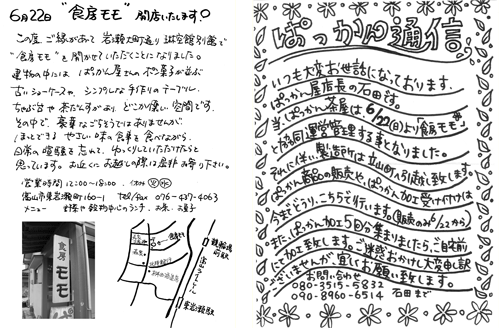 6月22日 "食房モモ" 開店いたします♪
この度、ご縁があって岩瀬大町通り 琳空館別館で
"食房モモ"を開かせていただくことになりました。
建物の中には ぱっかん屋さんの
古いショーケースや、シンプルな手作りのテーブル、
ちゃぶ台や茶だんすがあり、どこか懐しい空間です。
その中で、豪華なごちそうではありませんが、
ほっとできる やさしい味の食事を食べながら、
日常の喧騒を忘れて、ゆっくりしていただけたらと
思っています。お近くにお越しの際は是非お寄り下さい。
営業時間 12:00〜18:00 休み
富山市東岩瀬町160-1 Tel/Fax 076-437-4063
メニュー 野菜や穀物中心のランチ・お茶・お菓子
食房モモ
競輪場前駅
東岩瀬駅
ぱっかん通信
いつも大変お世話になっております。
ぱっかん屋店長の石田です。
当、ぱっかん茶屋は、6/22(日)より「食房モモ」
と協同運営管理する事となりました。
それに伴い、製造所は立山町へ引越し致します。
ぱっかん商品の販売や、ぱっかん加工受け付けは
今までどうり、こちらで行います。(販売のみ6/22から)
また、ぱっかん加工5回分集まりましたら、ご自宅前
に加工致します。ご迷惑おかけし大変申し訳
ございませんが、宜しくお願い致します。
お問い合わせ
080-3515-5832
090-8960-6514 石田まで